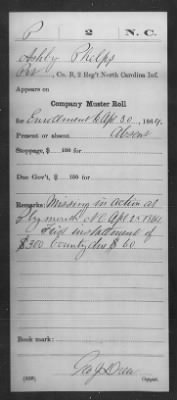 P 2 N.C.
Ashby Phelps
Pvt, Co. B, 2 Reg't North Carolina Inf.
Appears on
Company Muster Roll
for Enrollment to Apr 30, 1864.
Present or absent Absent
Stoppage, $ 100 for
Due Gov't, $ 100 for
Remarks: Missing in action at
Plymouth N.C. Apr. 20 1864
First installment of
$300 bounty due $60
Book mark:
Copyist.